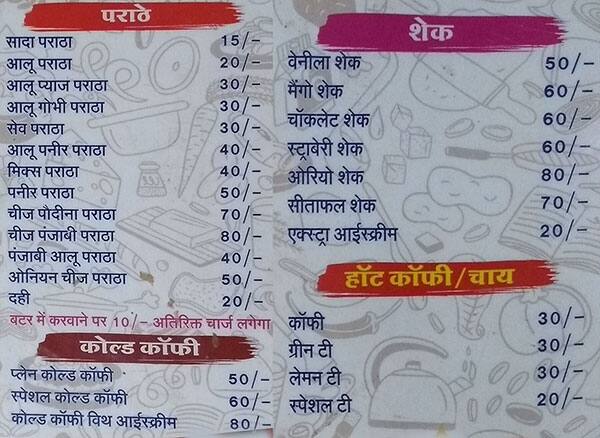 पराठे
सादा पराठा 15/-
आलू पराठा 20/-
आलू प्याज पराठा 30/-
आलू गोभी पराठा 30/-
सेव पराठा 30/-
आलू पनीर पराठा 40/-
मिक्स पराठा 40/-
पनीर पराठा 50/-
चीज पौदीना पराठा 70/-
चीज पंजाबी पराठा 80/-
पंजाबी आलू पराठा 40/-
ओनियन चीज पराठा 50/-
दही 20/-
बटर में करवाने पर 10/- अतिरिक्त चार्ज लगेगा
कोल्ड कॉफी
प्लेन कोल्ड कॉफी 50/-
स्पेशल कोल्ड कॉफी 60/-
कोल्ड कॉफी विथ आईस्क्रीम 80/-
शेक
वेनीला शेक 50/-
मैंगो शेक 60/-
चॉकलेट शेक 60/-
स्ट्राबेरी शेक 60/-
ओरियो शेक 80/-
सीताफल शेक 70/-
एक्स्ट्रा आईस्क्रीम 20/-
हॉट कॉफी/चाय
कॉफी 30/-
ग्रीन टी 30/-
लेमन टी 30/-
स्पेशल टी 20/-